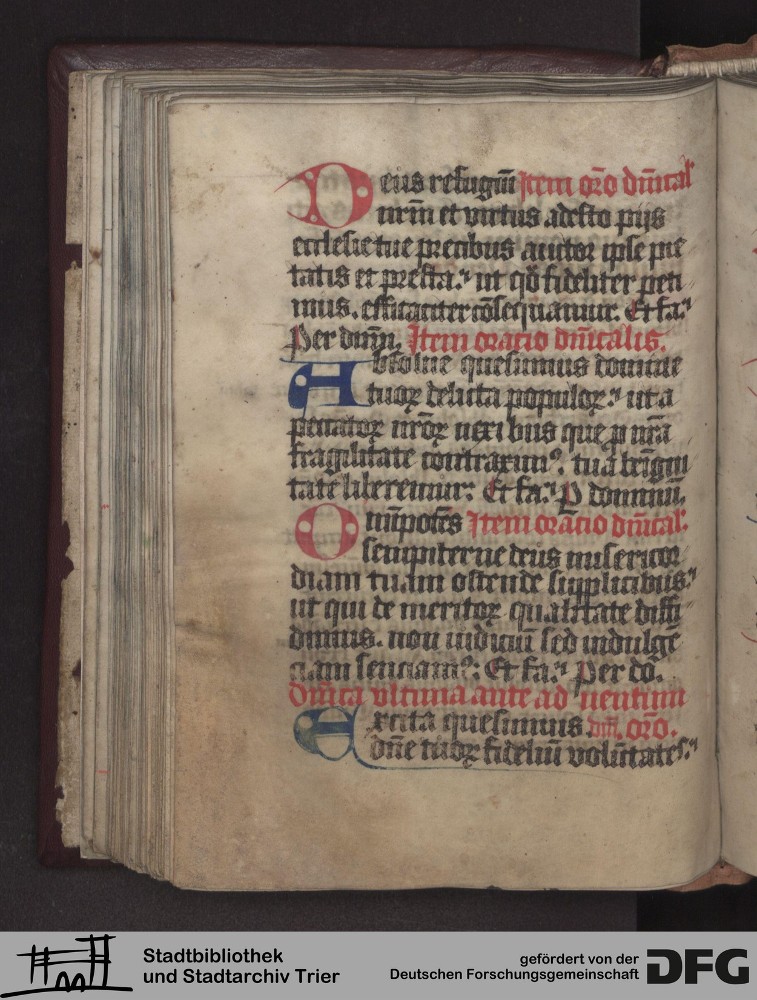 Deus refugiū Item oro̅ dn̅ical'
nrm̅ et virtus adesto pijs
ecclesie tue precibus auctor ipse pie
tatis et presta. ut qd̅ fideliter peti
mus. efficaciter cōsequamur. Et fa.
Per dnm̅. Item oracio dn̅icalis.
Absolue quesumus domine
tuoꝝ delicta populoꝝ. ut a
peccatoꝝ nr̅oꝝ nexibus que p̱ nr̅a
fragilitate contraximꝰ. tua benigni
tate liberemur: Et fa. P dominū.
Omp̅otēs Item oracio dn̅ical'
sempiterne deus misericor
diam tuam ostende supplicibus.
ut qui de meritoꝝ qualitate diffi
dimus. non iudiciū sed indulgē
ciam senciamꝰ: Et fa. Per do̅.
Dn̅ica vltima ante aduentum
Excita quesumus dn̅i. oro̅.
dn̅e tuoꝝ fideliū volūtates.
Stadtbibliothek
und Stadtarchiv Trier
gefördert von der
Deutschen Forschungsgemeinschaft
DFG